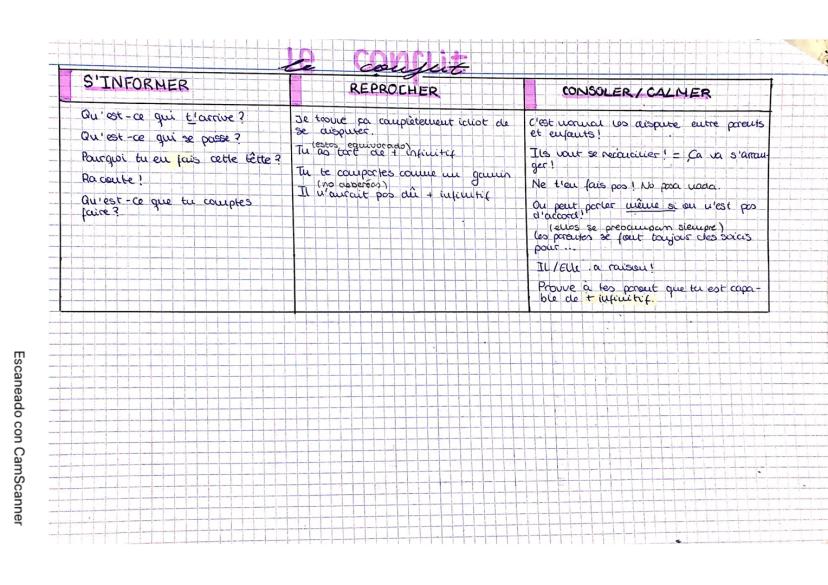 Le conflit
S'INFORMER
Qu'est-ce qui t'arrive?
Qu'est-ce qui se passe?
Pourquoi tu en fais cette tête?
Raconte!
Qu'est-ce que tu comptes
faire?
REPROCHER
Je trouve ça complètement idiot de
se disputer.
(estas equivocado)
Tu as tort de + infinitif
Tu te comportes comme un gamin
(no deberías)
Il n'aurait pas dû + infinitif
CONSOLER/CALMER
C'est normal les dispute entre parents
et enfants!
Ils vont se reconcilier! = Ça va s'arran-
ger!
Ne t'en fais pas! No pasa nada.
On peut parler même si on n'est pas
d'accord!
(ellos se preocupan siempre)
Les parents se font toujour des soicis
pour ...
IL/Elle a raison!
Prouve à tes parent que tu est capa-
ble de + infinitif.
Escaneado con CamScanner